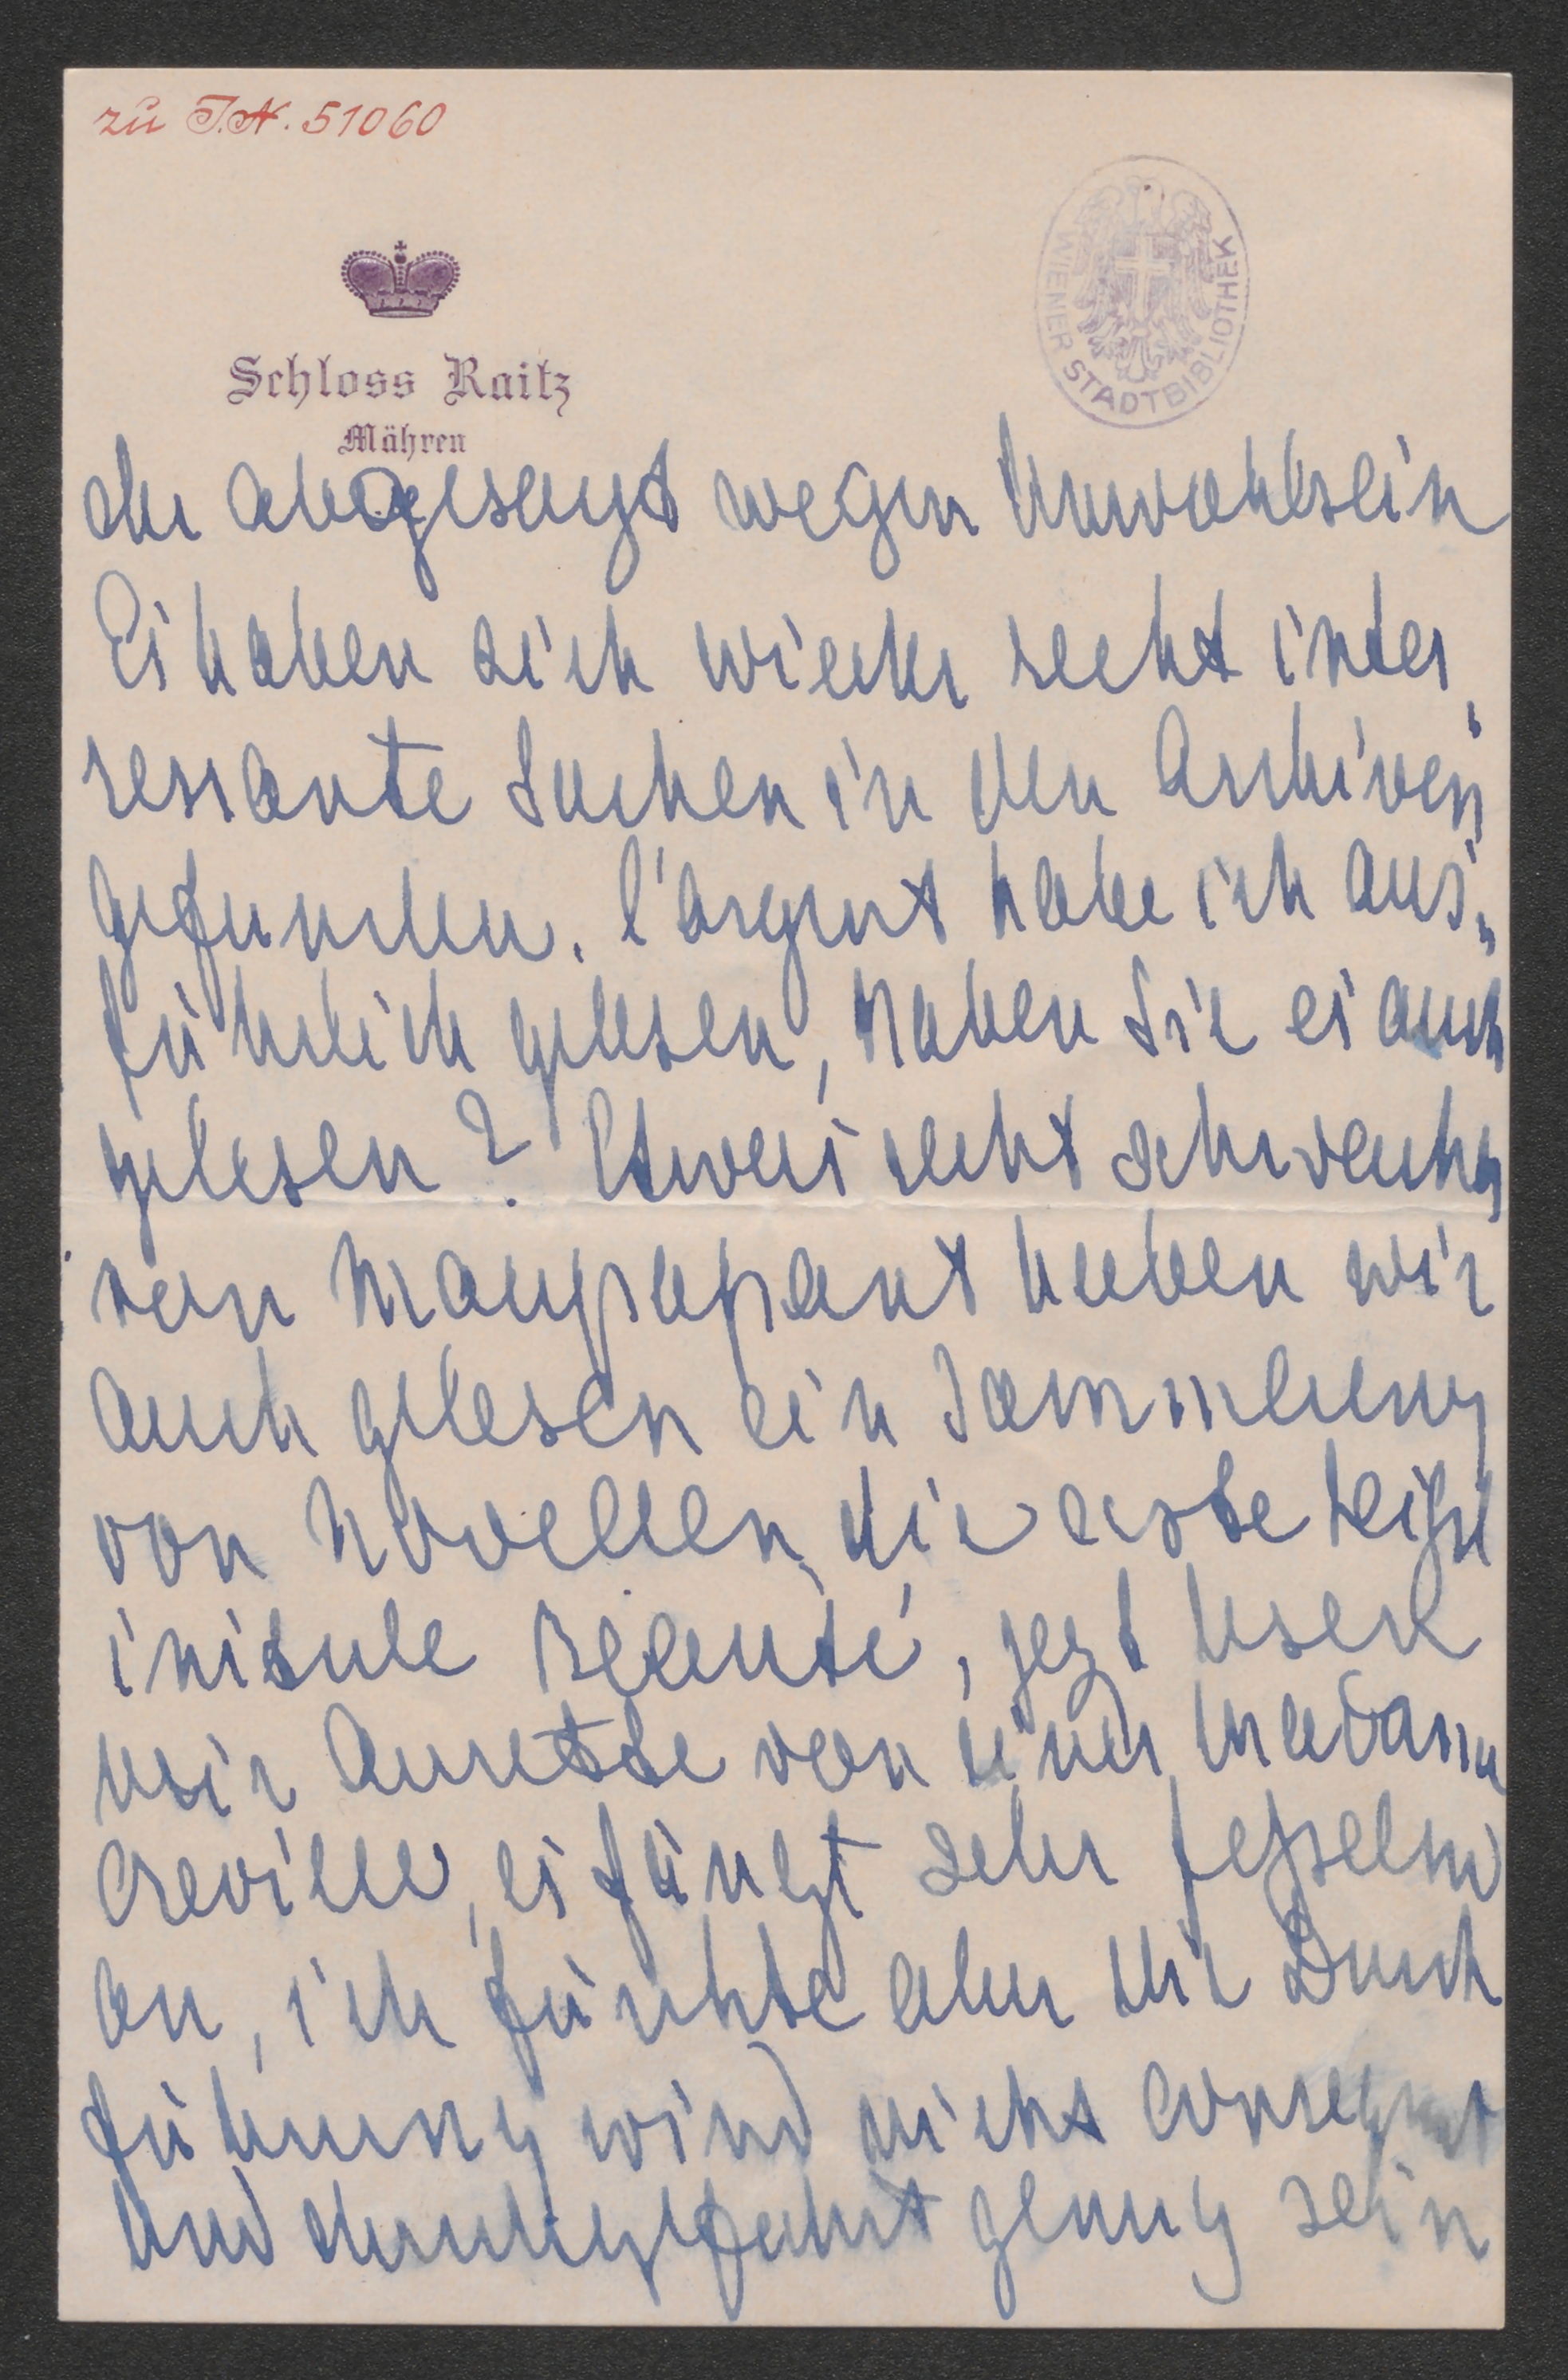 zu J.N. 51060
WIENER STADTBIBLIOTHEK
Schloss Raitz
Mähren
der abgesagt wegen Unwohlsein
Es haben sich wieder recht inte
ressante Sachen in den Archiven
gefunden. l'argent habe ich aus„
führlich gelesen, haben Sie es auch
gelesen? Etwas recht schwaches
von Maupaßant haben wir
auch gelesen ein Sammlung
von Novellen, die erste heißt
inisule Beauté, jezt lesen
wir Annette von einer Madame
Greville, es fängt sehr feßelnd
an, ich fürchte aber die Durch
führung wird nicht consequent
und durchgeführt genug sein